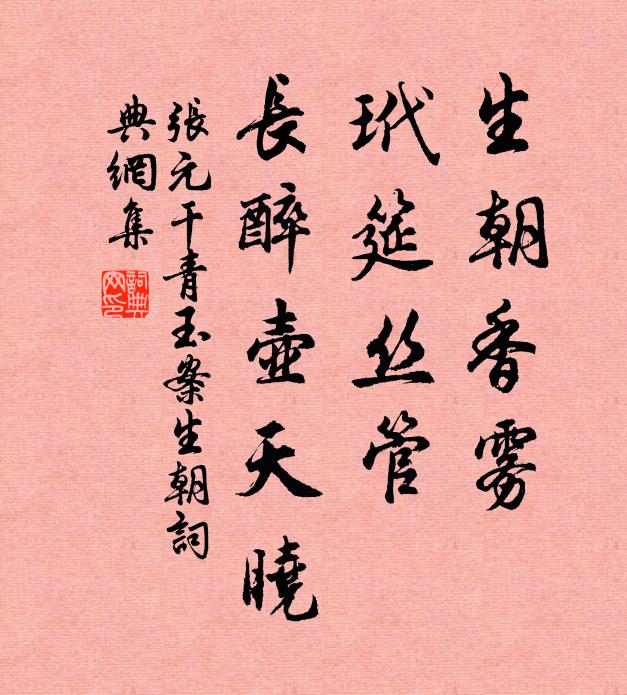 生朝香雾
玳筵丝管
長醉壺天曉
張元干青玉案生朝詞
典網集
詞典网印